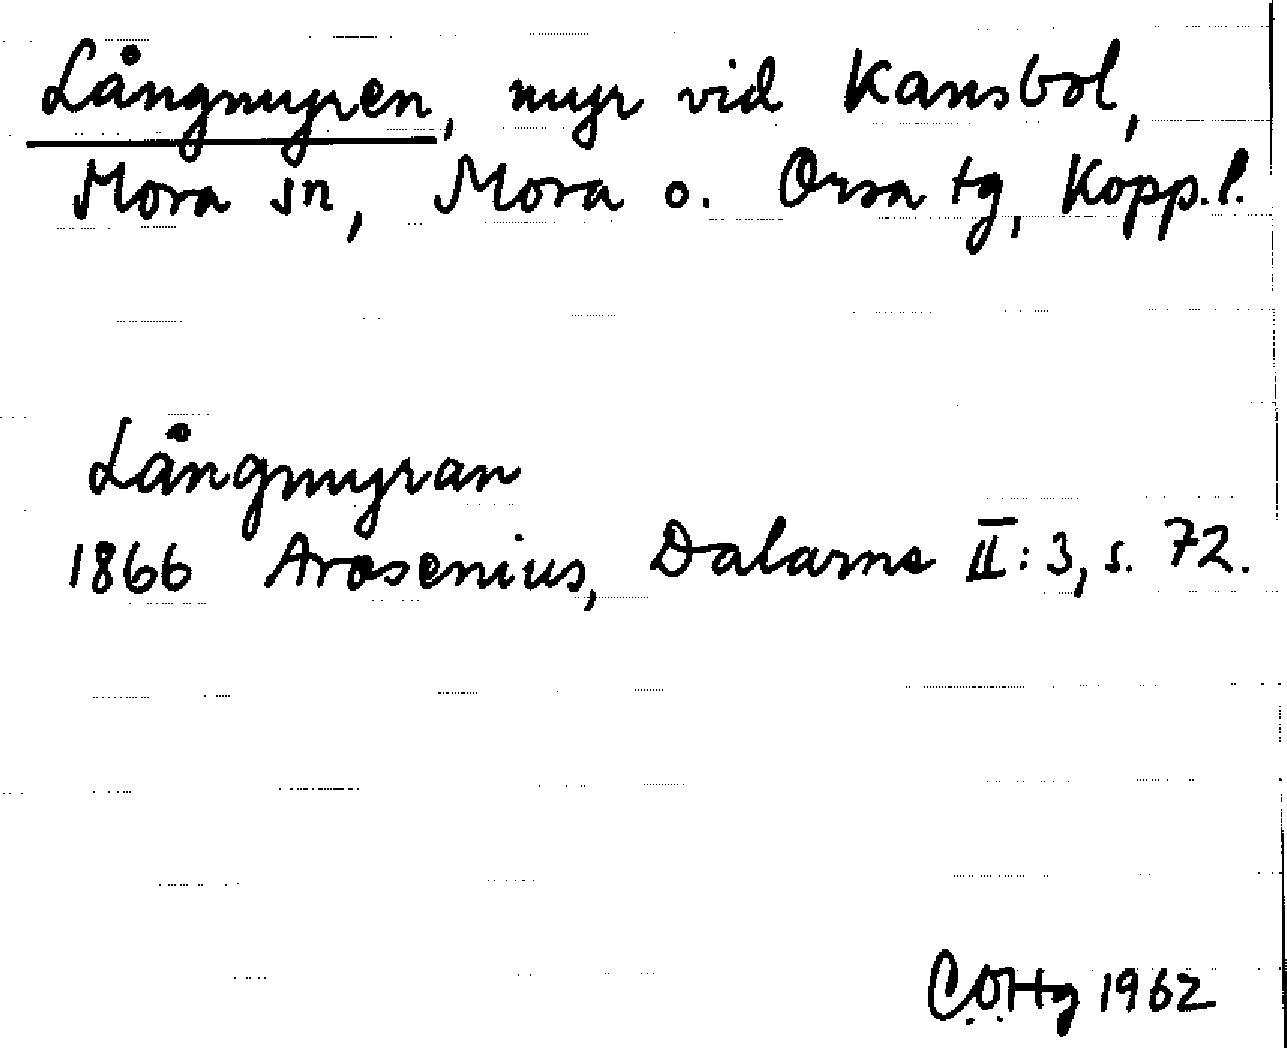 Långmyren, myr vid Kansbol,
Mora sn, Mora o. Orsa tg, Kopp.l.
Långmyran
1866 Arosenius, Dalarne II:3, s. 72.
C.O.Hg 1962